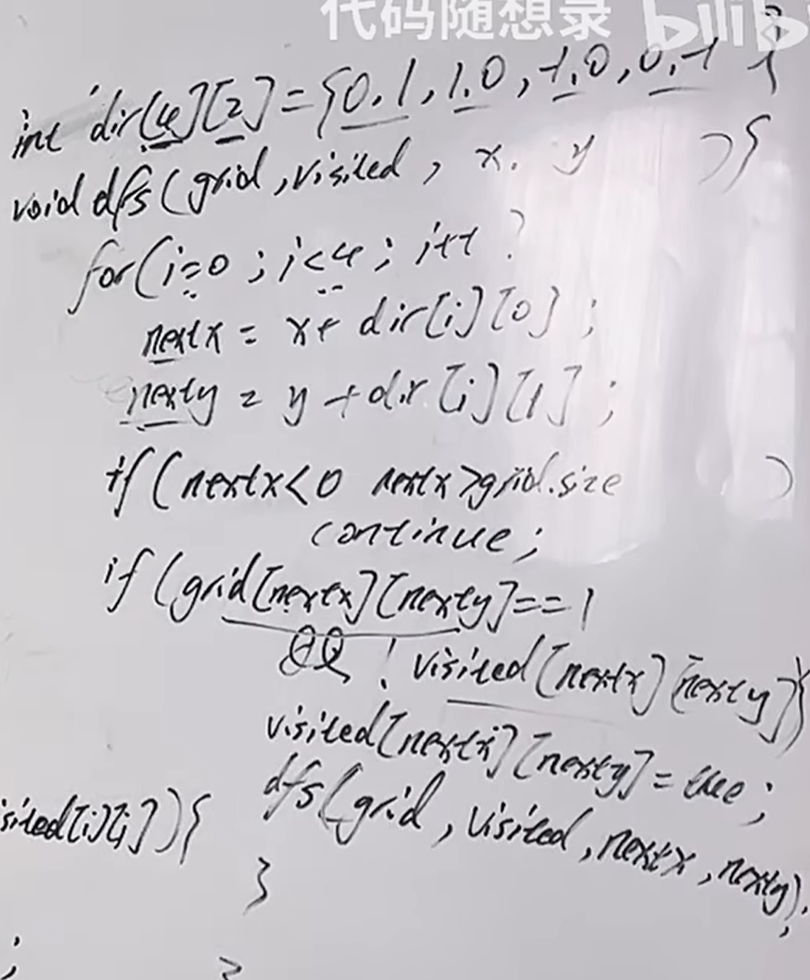 代码随想录 bilibi
int dir[4][2]={0,1,1,0,-1,0,0,-1}
void dfs(grid,visited, x, y ){
for(i=0;i<4;i++)
nextx = x+dir[i][0];
nexty = y+dir[i][1];
if(nextx<0 nextx>grid.size )
continue;
if(grid[nextx][nexty]==1
&& !visited[nextx][nexty]){
visited[nextx][nexty]=true;
dfs(grid,visited,nextx,nexty);
sited[i][j]){
}
;
}